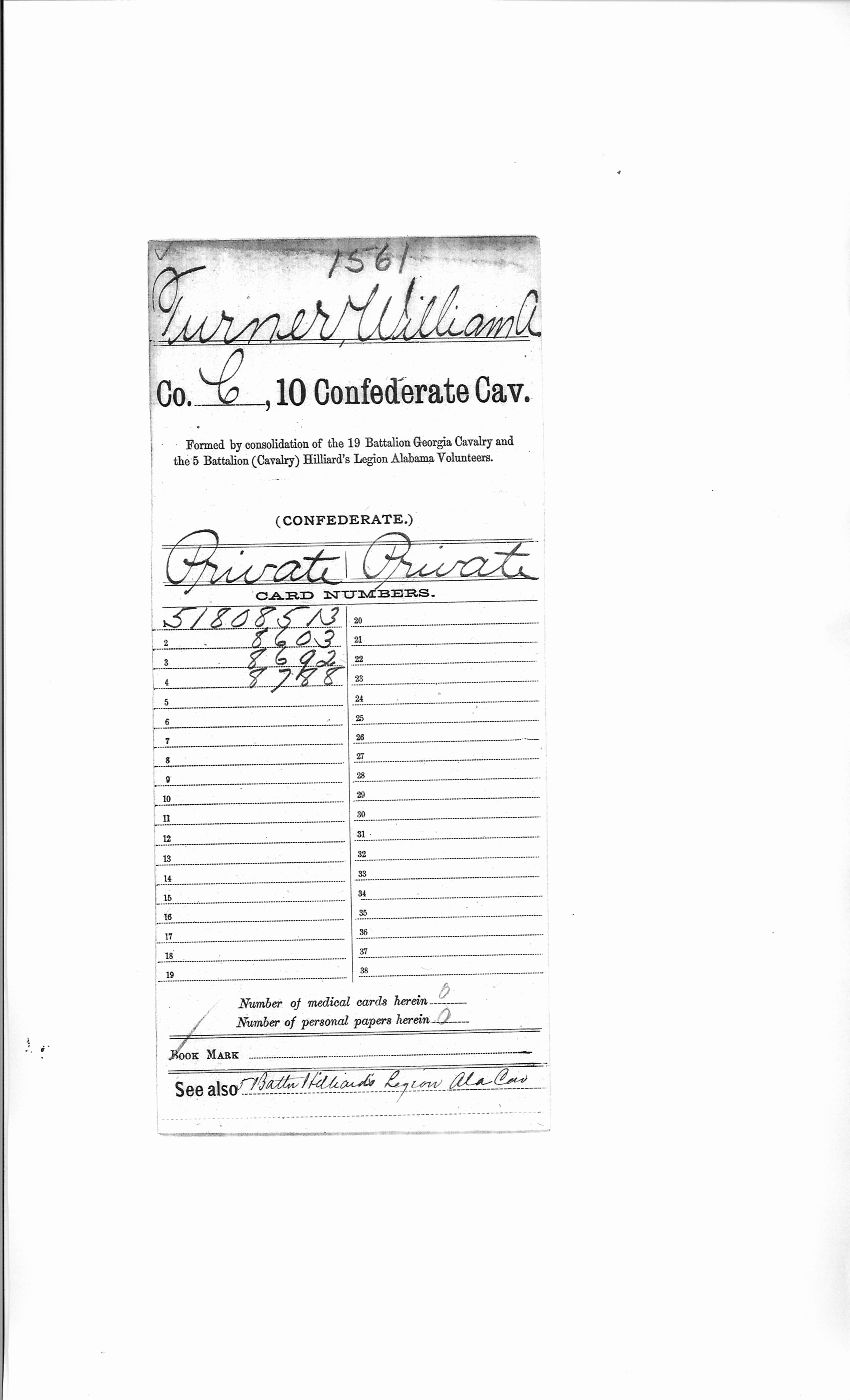 1561
Turner, William A
Co. C, 10 Confederate Cav.
Formed by consolidation of the 19 Battalion Georgia Cavalry and
the 5 Battalion (Cavalry) Hilliard's Legion Alabama Volunteers.
(CONFEDERATE.)
Private | Private
CARD NUMBERS.
1 51808513 20
2 8603 21
3 8692 22
4 8788 23
5 24
6 25
7 26
8 27
9 28
10 29
11 30
12 31
13 32
14 33
15 34
16 35
17 36
18 37
19 38
Number of medical cards herein 0
Number of personal papers herein 0
BOOK MARK
See also 5 Battn Hilliard's Legion Ala Cav